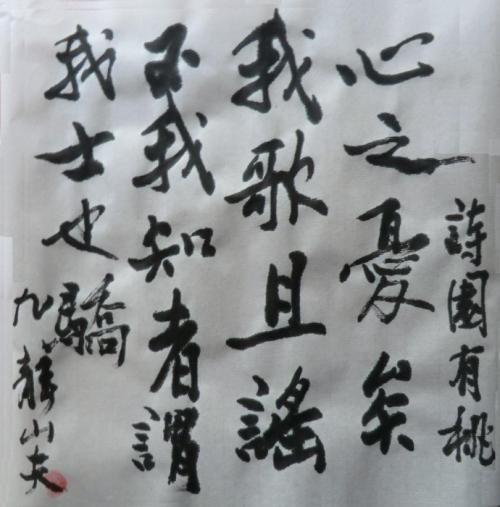 詩園有桃
心之憂矣
我歌且謠
不我知者謂
我士也驕
九山夫